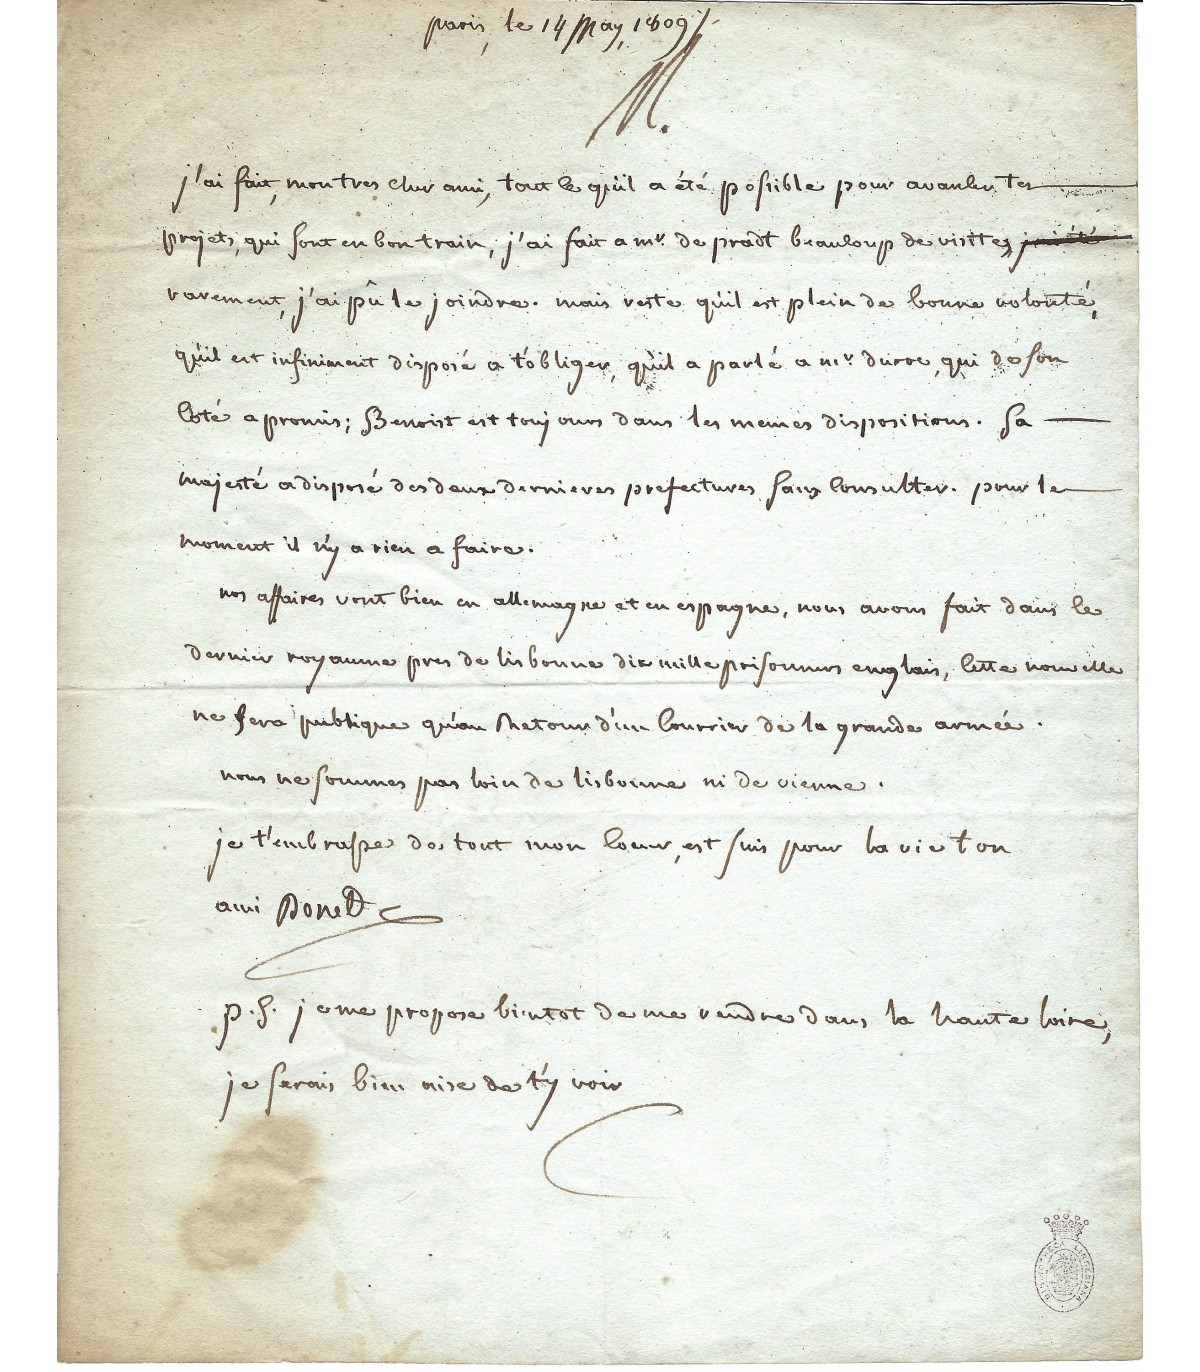 paris, le 14 May, 1809/.
M.
j'ai fait, mon tres cher ami, tout ce qu'il a été possible pour avancer tes
projets, qui sont en bon train, j'ai fait a mr. de pradt beaucoup de visites,
rarement, j'ai pû le joindre. mais reste qu'il est plein de bonne volonté,
qu'il est infiniment disposé a t'obliger, qu'il a parlé a mr. duroc, qui de son
coté a promis; Benoist est toujours dans les memes dispositions. Sa
majesté a disposé des deux dernieres prefectures sans consulter. pour le
moment il n'y a rien a faire.
nos affaires vont bien en allemagne et en espagne, nous avons fait dans le
dernier royaume pres de lisbonne dix mille prisonniers englais, cette nouvelle
ne sera publique qu'au Retour d'un courrier de la grande armée.
nous ne sommes pas loin de lisbonne ni de vienne.
je t'embrasse de tout mon coeur, est suis pour la vie ton
ami
p.s. je me propose bientot de me rendre dans la haute loire,
je serais bien aise de t'y voir
BIBLIOTHECA LINDESIANA